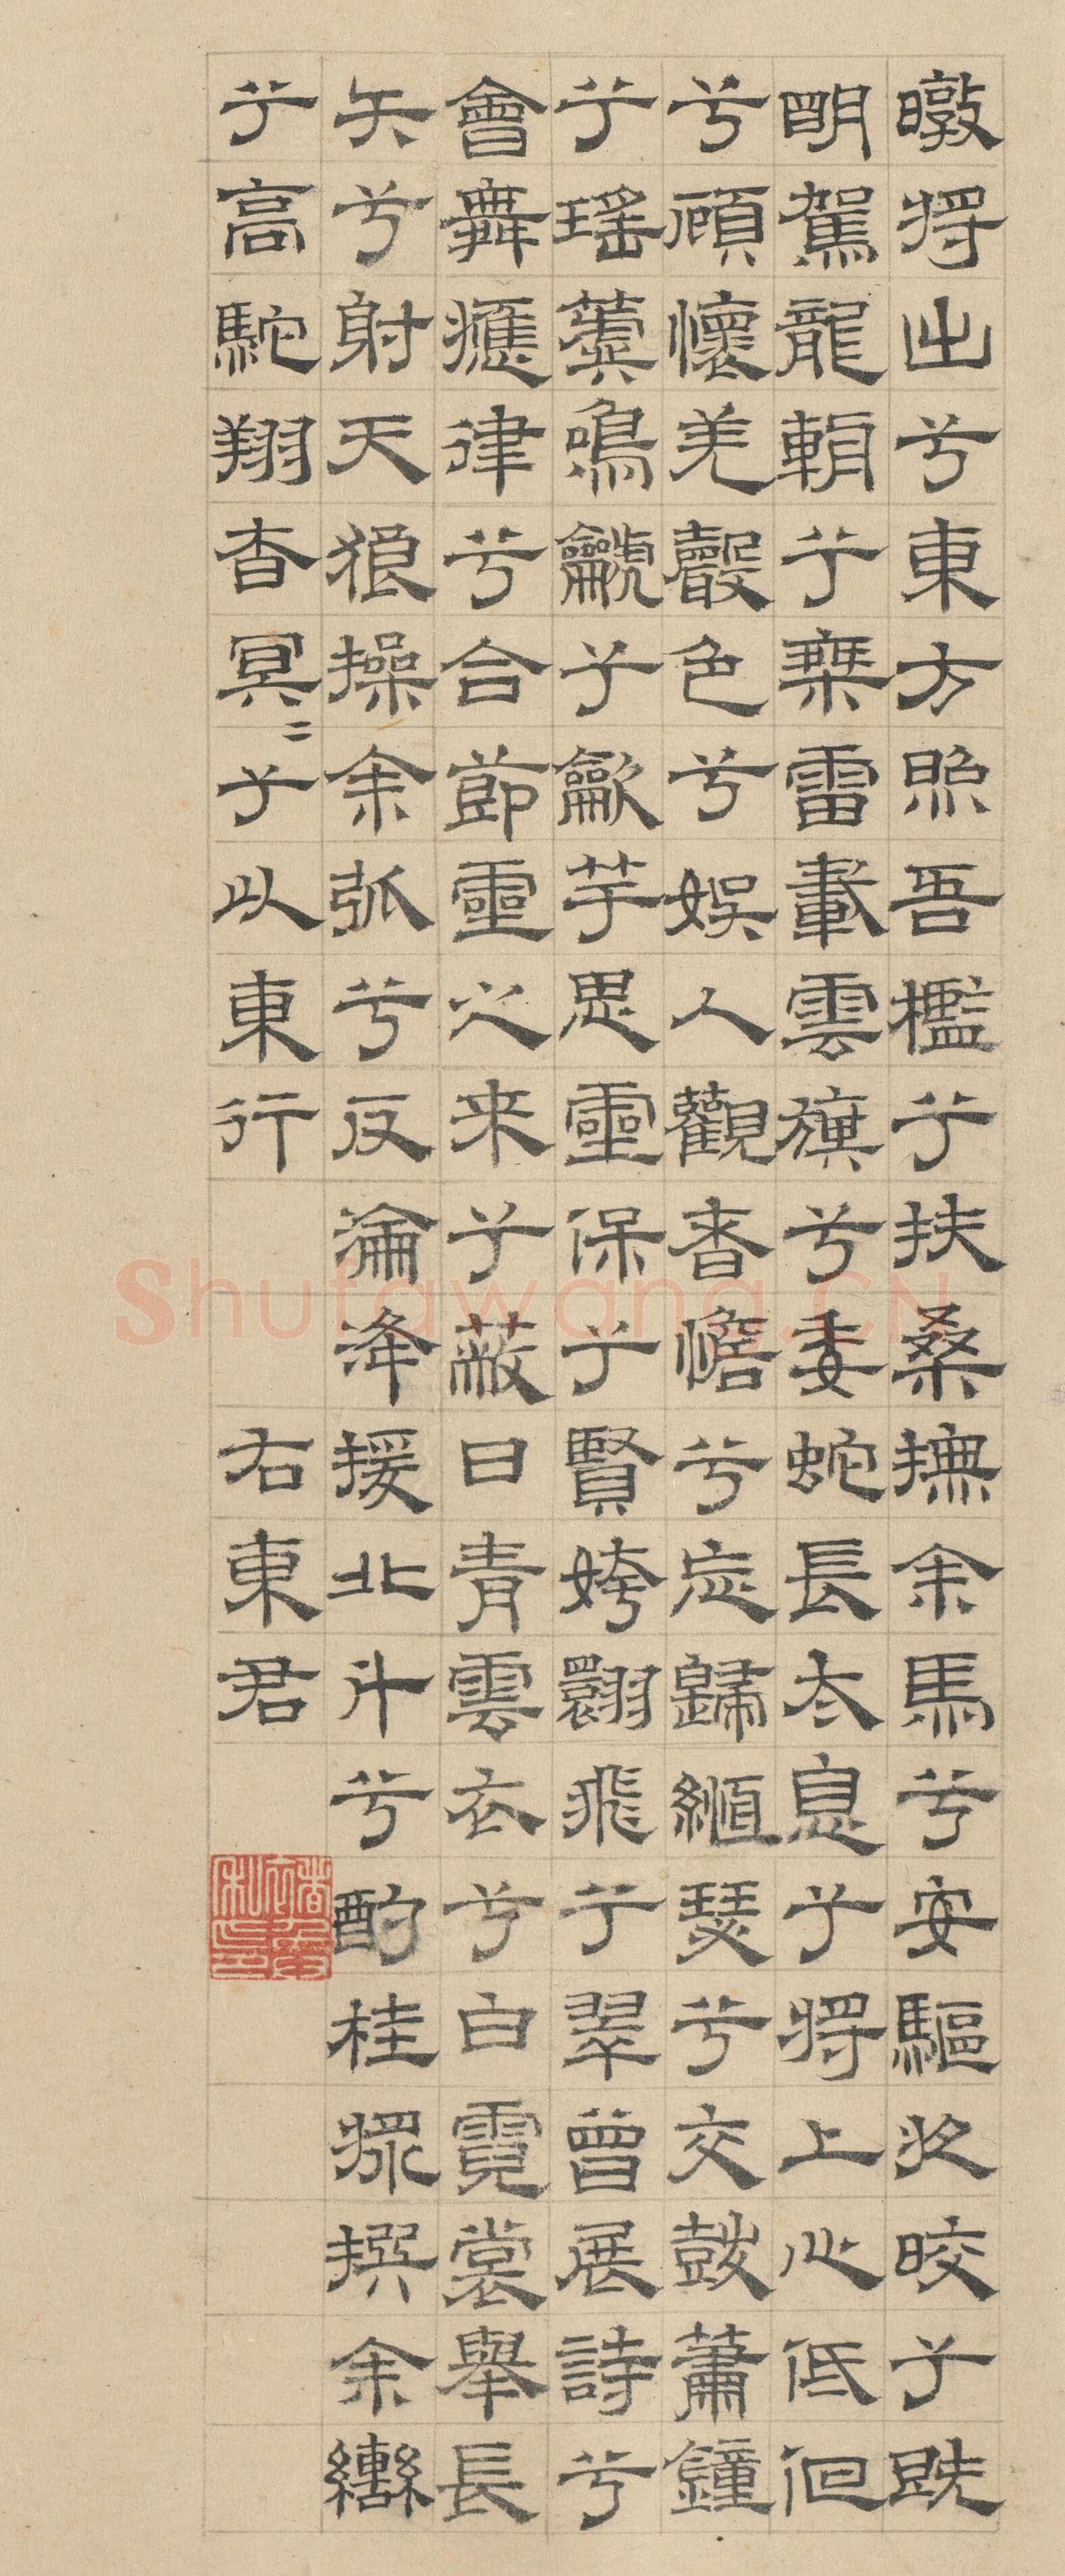 暾將出兮東方照吾檻兮扶桑撫余馬兮安驅夜皎兮既
明駕龍輈兮椉雷載雲旗兮委蛇長太息兮將上心低佪
兮顧懷羌聲色兮娛人觀者憺兮忘歸緪瑟兮交鼓簫鐘
兮瑤簴鳴䶵兮龡竽思靈保兮賢姱翾飛兮翠曾展詩兮
會舞應律兮合節靈之來兮蔽日青雲衣兮白霓裳舉長
矢兮射天狼操余弧兮反淪降援北斗兮酌桂漿撰余轡
兮高駝翔杳冥二兮以東行 右東君
Shufawang.CN